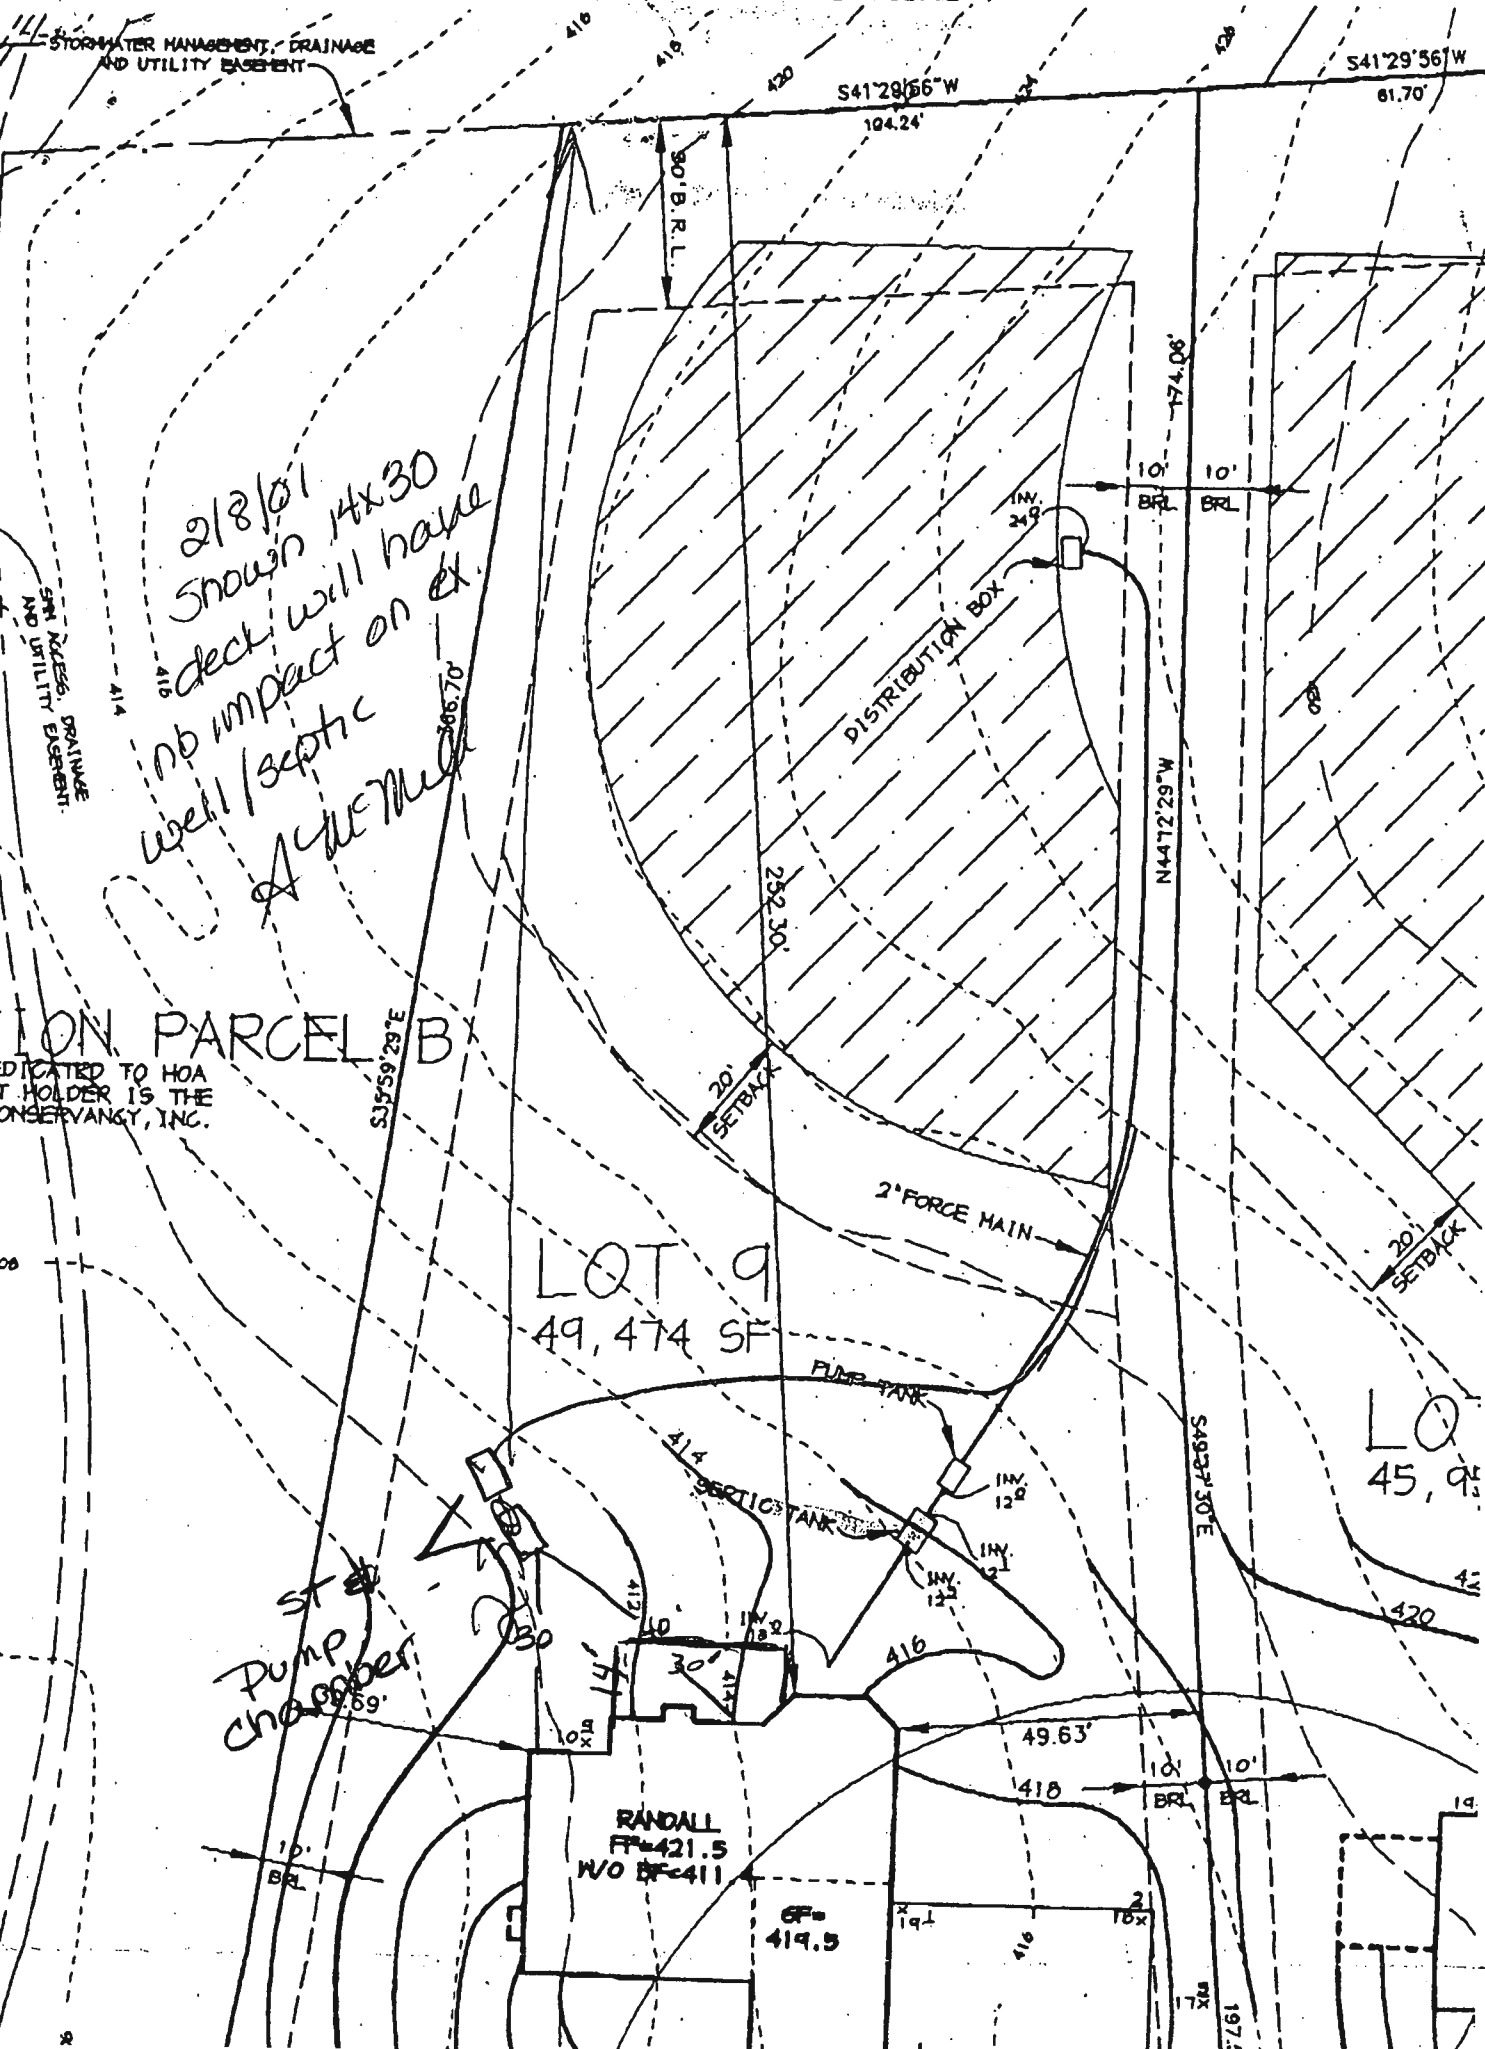 STORMWATER MANAGEMENT, DRAINAGE
AND UTILITY EASEMENT
416
418
420
424
426
S41°29'56"W
104.24'
S41°29'56"W
61.70'
30' B.R.L.
174.06'
10'
BRL
10'
BRL
INV.
DISTRIBUTION BOX
2/8/01
shown 14x30
deck will have
no impact on ex.
well/septic
SWM ACCESS, DRAINAGE
AND UTILITY EASEMENT
414
416
N44°12'29"W
252.30'
ION PARCEL B
EDICATED TO HOA
T HOLDER IS THE
ONSERVANCY, INC.
S35°59'29"E
20'
SETBACK
2" FORCE MAIN
20'
SETBACK
LOT 9
49,474 SF
PUMP TANK
LO
45,9
S49°37'30"E
414
SEPTIC TANK
INV.
INV.
INV.
412
40'
INV.
30
30'
14'
414
416
420
ST &
Pump
chamber
.69'
49.63'
10'
BRL
10'
BRL
418
10'
BRL
RANDALL
FF=421.5
W/O BF=411
GF=
419.5
416
19
197.